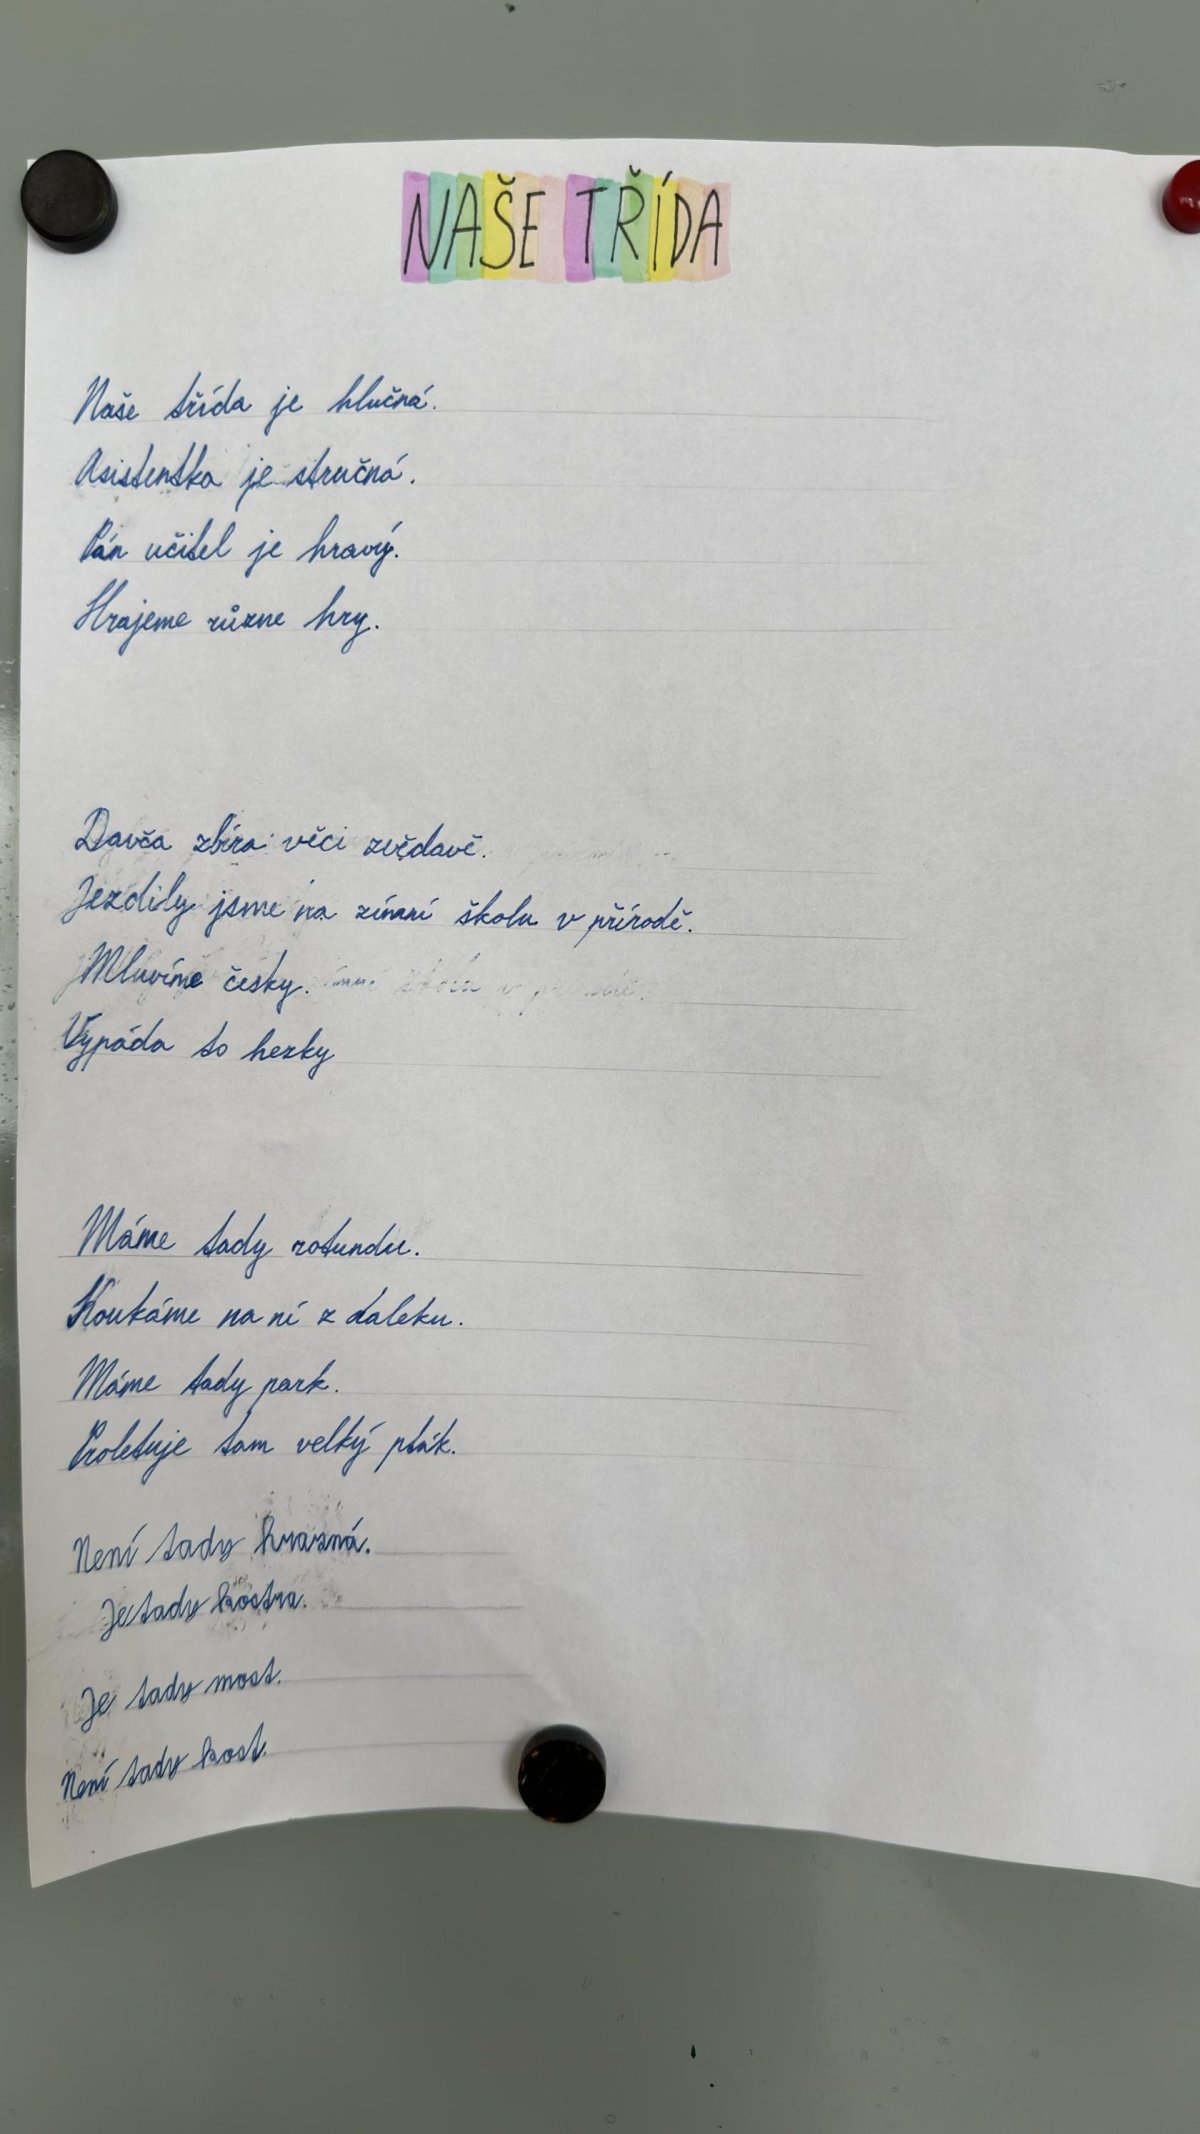 NAŠE TŘÍDA
Naše třída je hlučná.
Asistentka je stručná.
Pán učitel je hravý.
Hrajeme různe hry.
Davča zbíra věci zvědavě.
Jezdily jsme na zimní školu v přírodě.
Mluvíme česky.
Vypáda to hezky
Máme tady rotundu.
Koukáme na ní z daleku.
Máme tady park.
Proletuje tam velký pták.
Není tady hrazná.
Je tady kostra.
Je tady most.
Není tady kost.